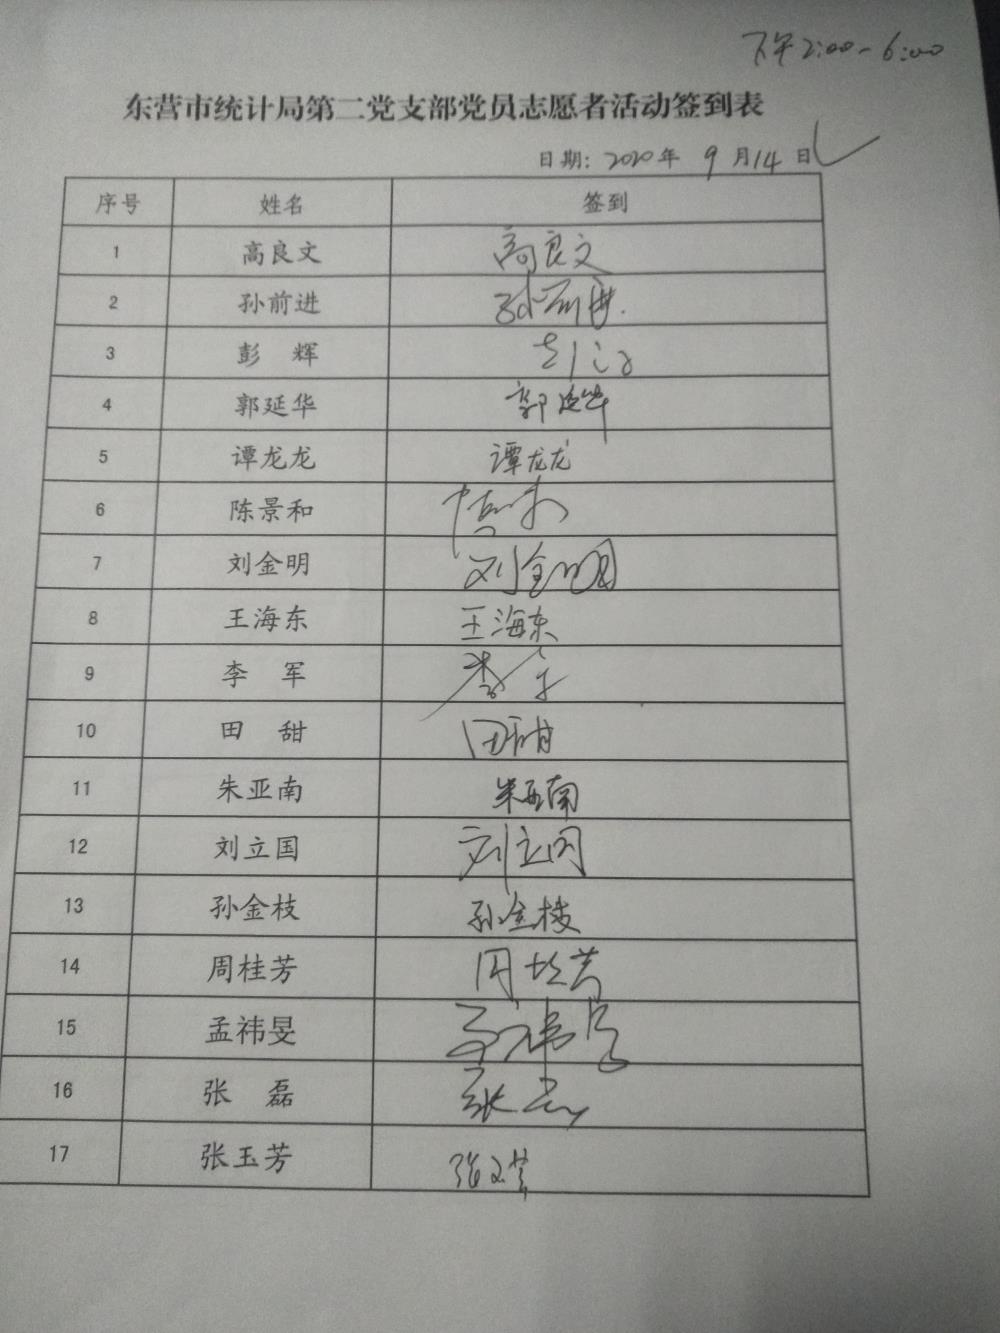 下午2:00-6:00
东营市统计局第二党支部党员志愿者活动签到表
日期: 2020年 9月14日
序号 姓名 签到
1 高良文 高良文
2 孙前进 孙前进
3 彭 辉
4 郭延华 郭延华
5 谭龙龙 谭龙龙
6 陈景和
7 刘金明 刘金明
8 王海东 王海东
9 李 军 李军
10 田 甜 田甜
11 朱亚南 朱亚南
12 刘立国 刘立国
13 孙金枝 孙金枝
14 周桂芳 周桂芳
15 孟祎旻 孟祎旻
16 张 磊 张磊
17 张玉芳 张玉芳